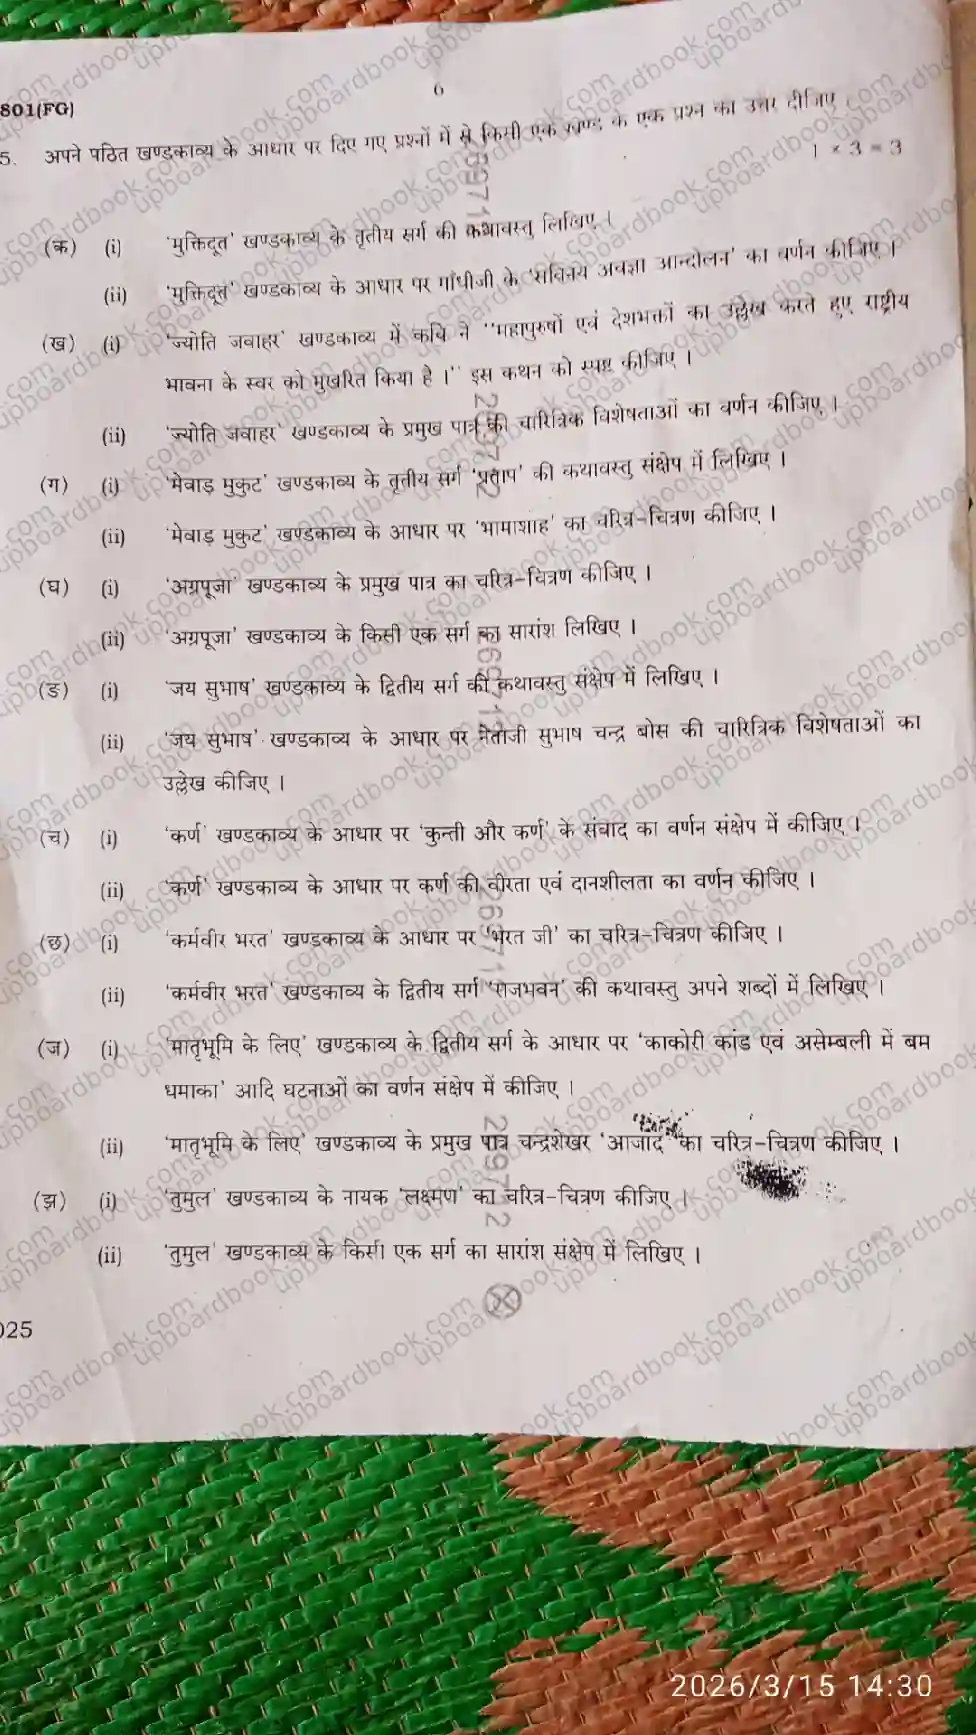 6
801(FG)
5. अपने पठित खण्डकाव्य के आधार पर दिए गए प्रश्नों में से किसी एक खण्ड के एक प्रश्न का उत्तर दीजिए
1 × 3 = 3
(क) (i) 'मुक्तिदूत' खण्डकाव्य के तृतीय सर्ग की कथावस्तु लिखिए ।
(ii) 'मुक्तिदूत' खण्डकाव्य के आधार पर गाँधीजी के 'सविनय अवज्ञा आन्दोलन' का वर्णन कीजिए ।
(ख) (i) 'ज्योति जवाहर' खण्डकाव्य में कवि ने ''महापुरुषों एवं देशभक्तों का उल्लेख करते हुए राष्ट्रीय
भावना के स्वर को मुखरित किया है ।'' इस कथन को स्पष्ट कीजिए ।
(ii) 'ज्योति जवाहर' खण्डकाव्य के प्रमुख पात्र की चारित्रिक विशेषताओं का वर्णन कीजिए ।
(ग) (i) 'मेवाड़ मुकुट' खण्डकाव्य के तृतीय सर्ग 'प्रताप' की कथावस्तु संक्षेप में लिखिए ।
(ii) 'मेवाड़ मुकुट' खण्डकाव्य के आधार पर 'भामाशाह' का चरित्र-चित्रण कीजिए ।
(घ) (i) 'अग्रपूजा' खण्डकाव्य के प्रमुख पात्र का चरित्र-चित्रण कीजिए ।
(ii) 'अग्रपूजा' खण्डकाव्य के किसी एक सर्ग का सारांश लिखिए ।
(ङ) (i) 'जय सुभाष' खण्डकाव्य के द्वितीय सर्ग की कथावस्तु संक्षेप में लिखिए ।
(ii) 'जय सुभाष' खण्डकाव्य के आधार पर नेताजी सुभाष चन्द्र बोस की चारित्रिक विशेषताओं का
उल्लेख कीजिए ।
(च) (i) 'कर्ण' खण्डकाव्य के आधार पर 'कुन्ती और कर्ण' के संवाद का वर्णन संक्षेप में कीजिए ।
(ii) 'कर्ण' खण्डकाव्य के आधार पर कर्ण की वीरता एवं दानशीलता का वर्णन कीजिए ।
(छ) (i) 'कर्मवीर भरत' खण्डकाव्य के आधार पर 'भरत जी' का चरित्र-चित्रण कीजिए ।
(ii) 'कर्मवीर भरत' खण्डकाव्य के द्वितीय सर्ग 'राजभवन' की कथावस्तु अपने शब्दों में लिखिए ।
(ज) (i) 'मातृभूमि के लिए' खण्डकाव्य के द्वितीय सर्ग के आधार पर 'काकोरी कांड एवं असेम्बली में बम
धमाका' आदि घटनाओं का वर्णन संक्षेप में कीजिए ।
(ii) 'मातृभूमि के लिए' खण्डकाव्य के प्रमुख पात्र चन्द्रशेखर 'आजाद' का चरित्र-चित्रण कीजिए ।
(झ) (i) 'तुमुल' खण्डकाव्य के नायक 'लक्ष्मण' का चरित्र-चित्रण कीजिए ।
(ii) 'तुमुल' खण्डकाव्य के किसी एक सर्ग का सारांश संक्षेप में लिखिए ।
025
upboardbook.com
2026/3/15 14:30